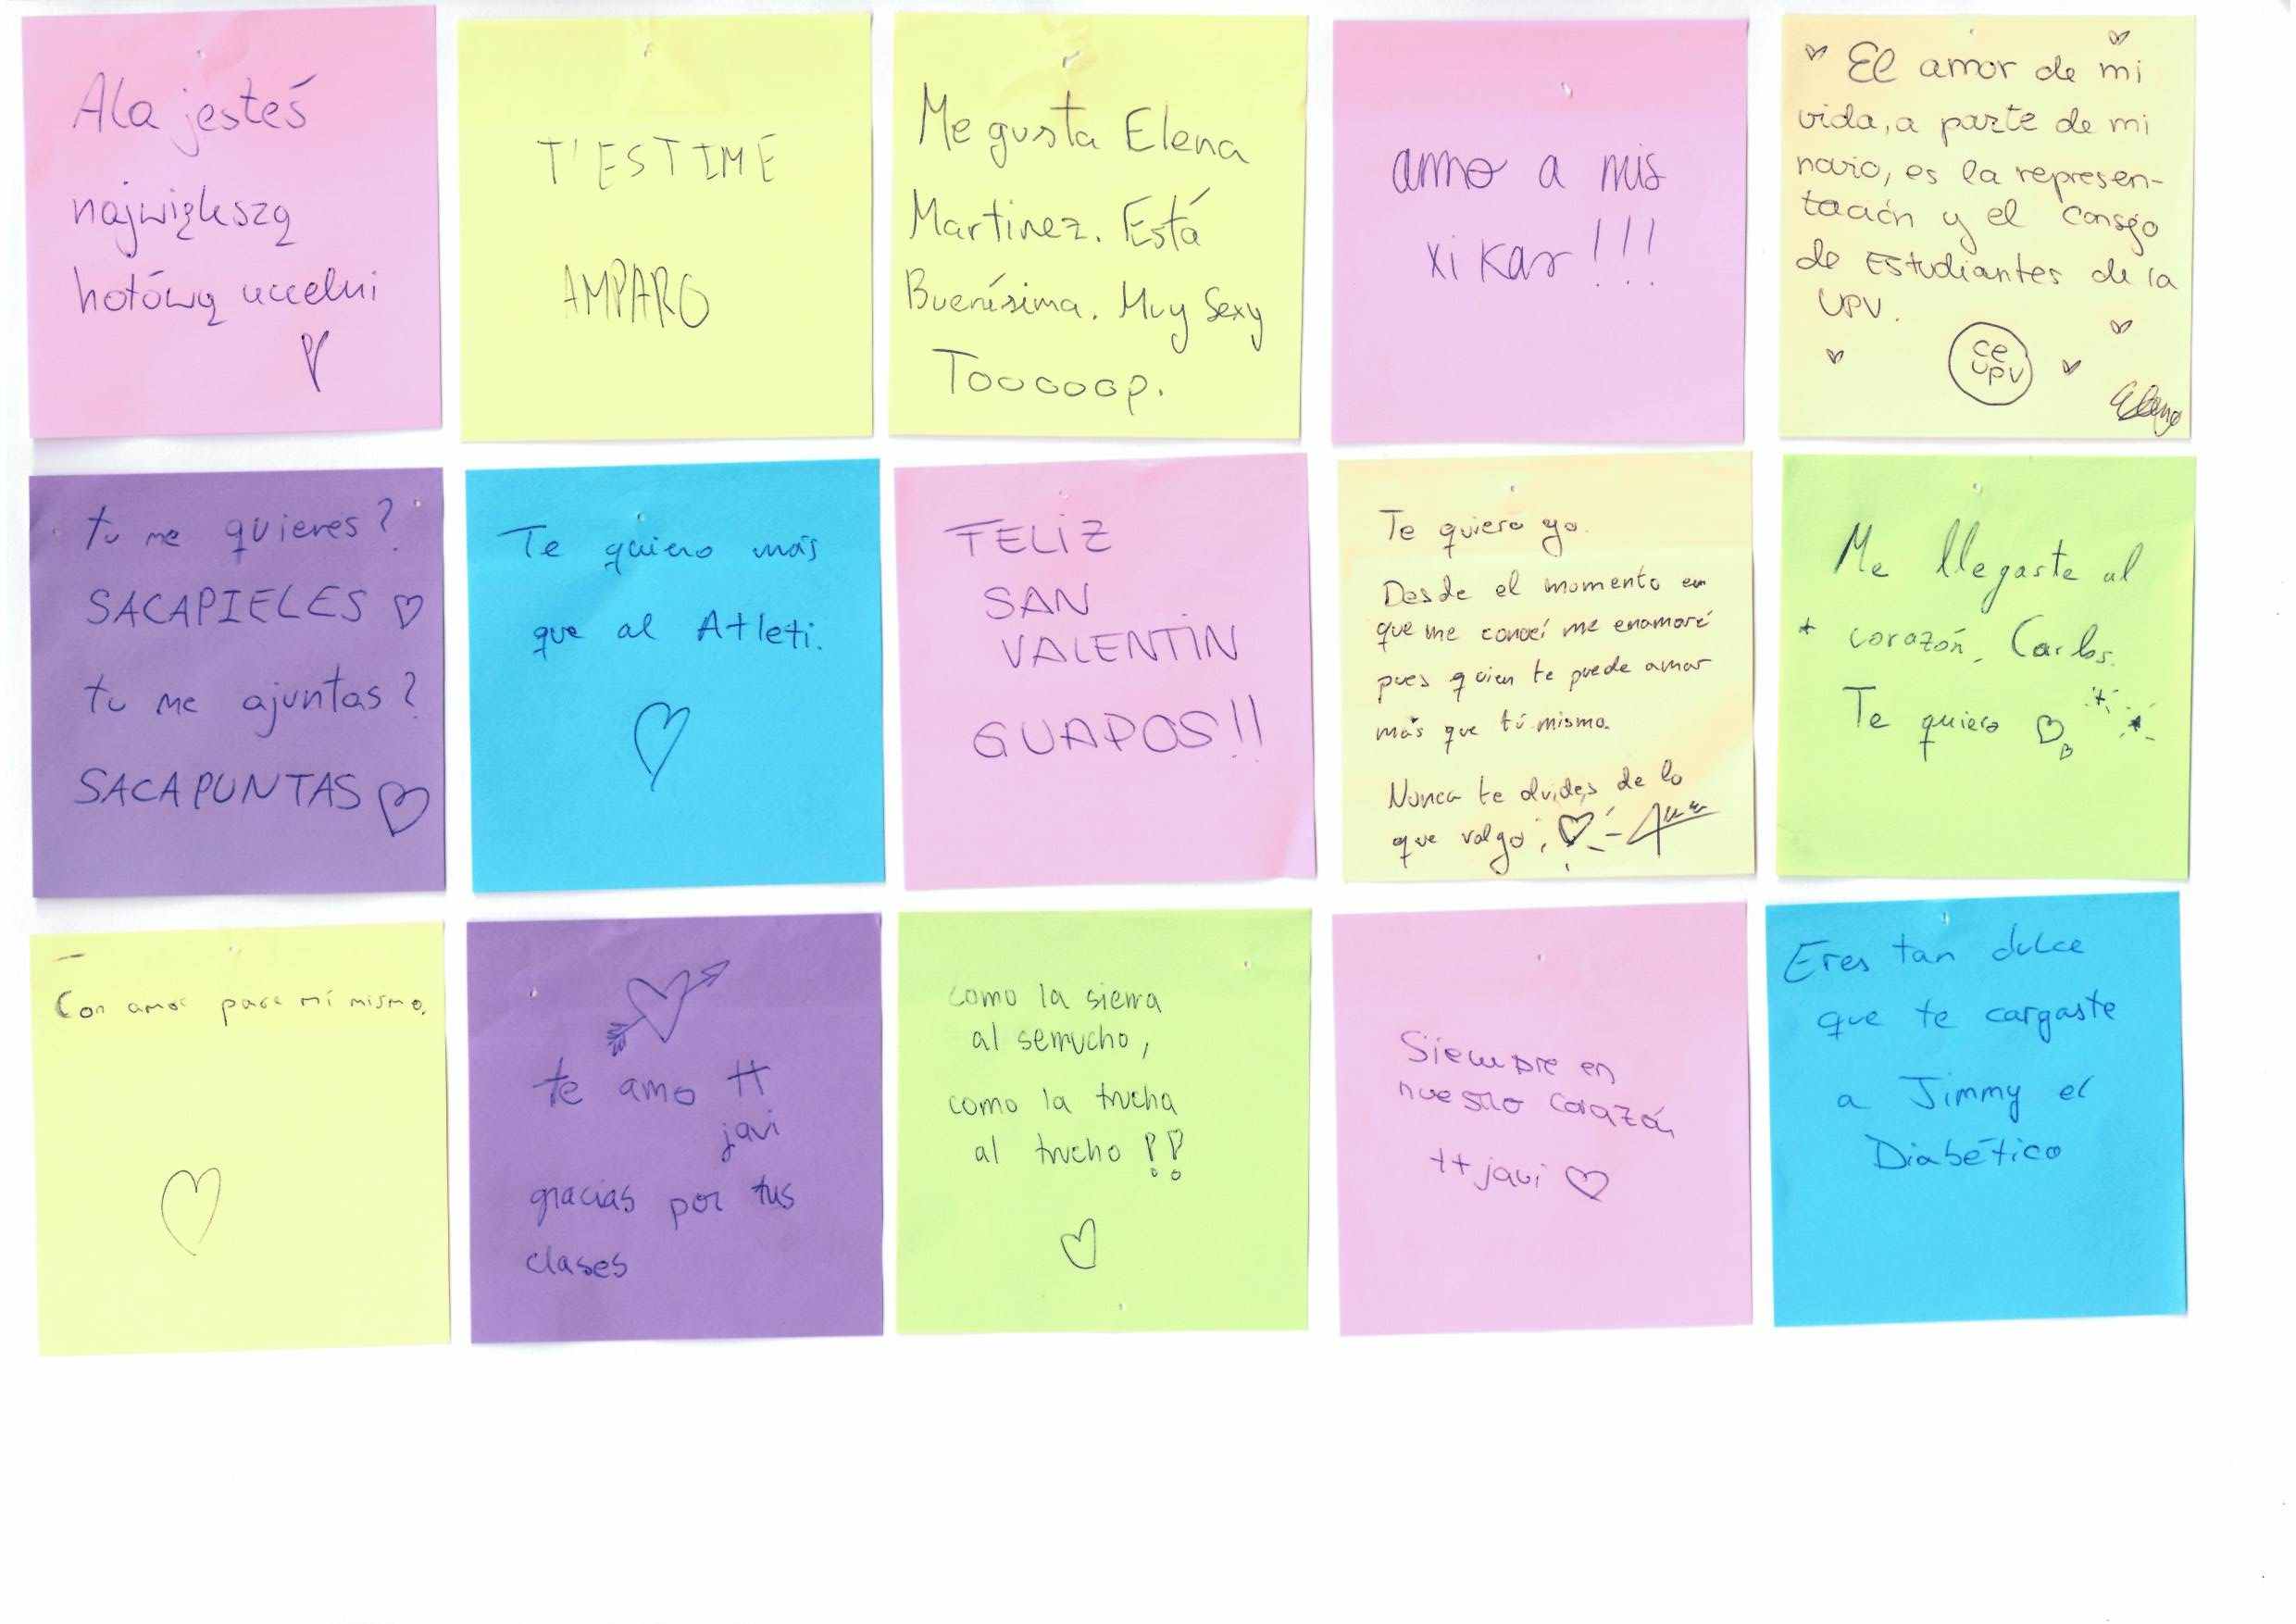 Ala jesteś
największą
hotówą uczelni
T'ESTIME
AMPARO
Me gusta Elena
Martinez. Está
Buenísima. Muy Sexy
Tooooop.
amo a mis
xikas!!!
El amor de mi
vida, a parte de mi
novio, es la represen-
tación y el consejo
de Estudiantes de la
UPV.
ce
upv
Elena
tu me quieres?
SACAPIELES
tu me ajuntas?
SACAPUNTAS
Te quiero más
que al Atleti.
FELIZ
SAN
VALENTIN
GUAPOS!!
Te quiero yo.
Desde el momento en
que me conocí me enamoré
pues quien te puede amar
más que tú mismo.
Nunca te olvides de lo
que valgo.
Me llegaste al
corazón, Carlos.
Te quiero
Con amor para mí mismo.
te amo tt
javi
gracias por tus
clases
como la sierra
al serrucho,
como la trucha
al trucho!!
Siempre en
nuestro corazón
tt javi
Eres tan dulce
que te cargaste
a Jimmy el
Diabético